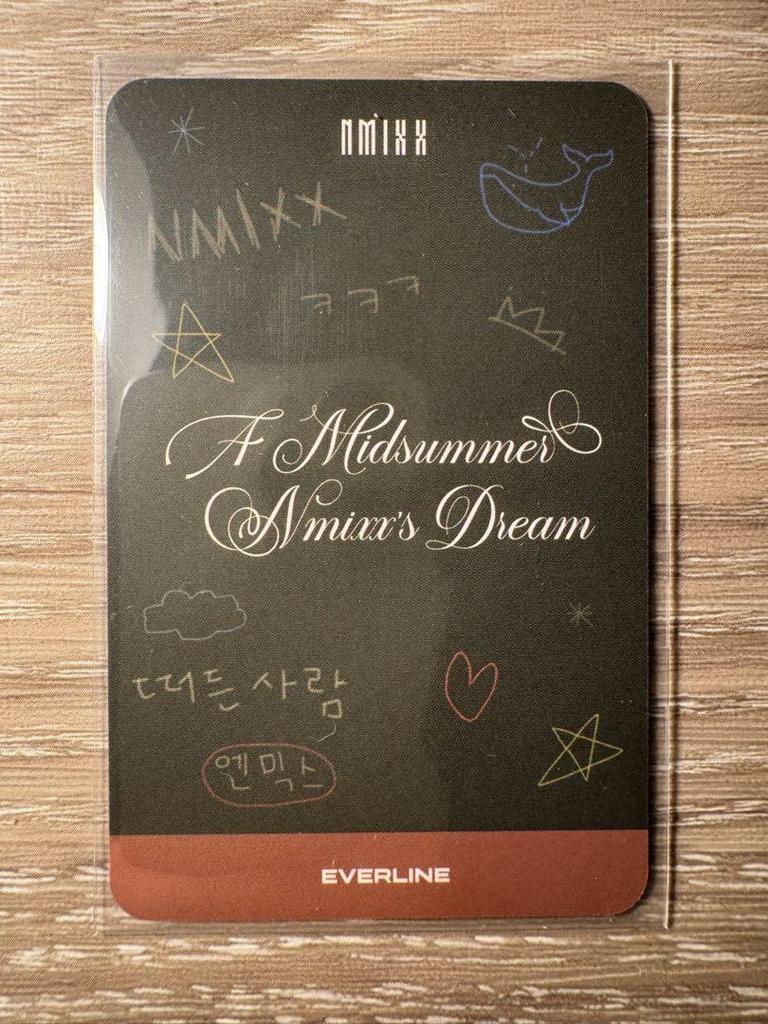 NMIXX
NMIXX
ㅋㅋㅋ
A Midsummer
Nmixx's Dream
떠든 사람
엔믹스
EVERLINE